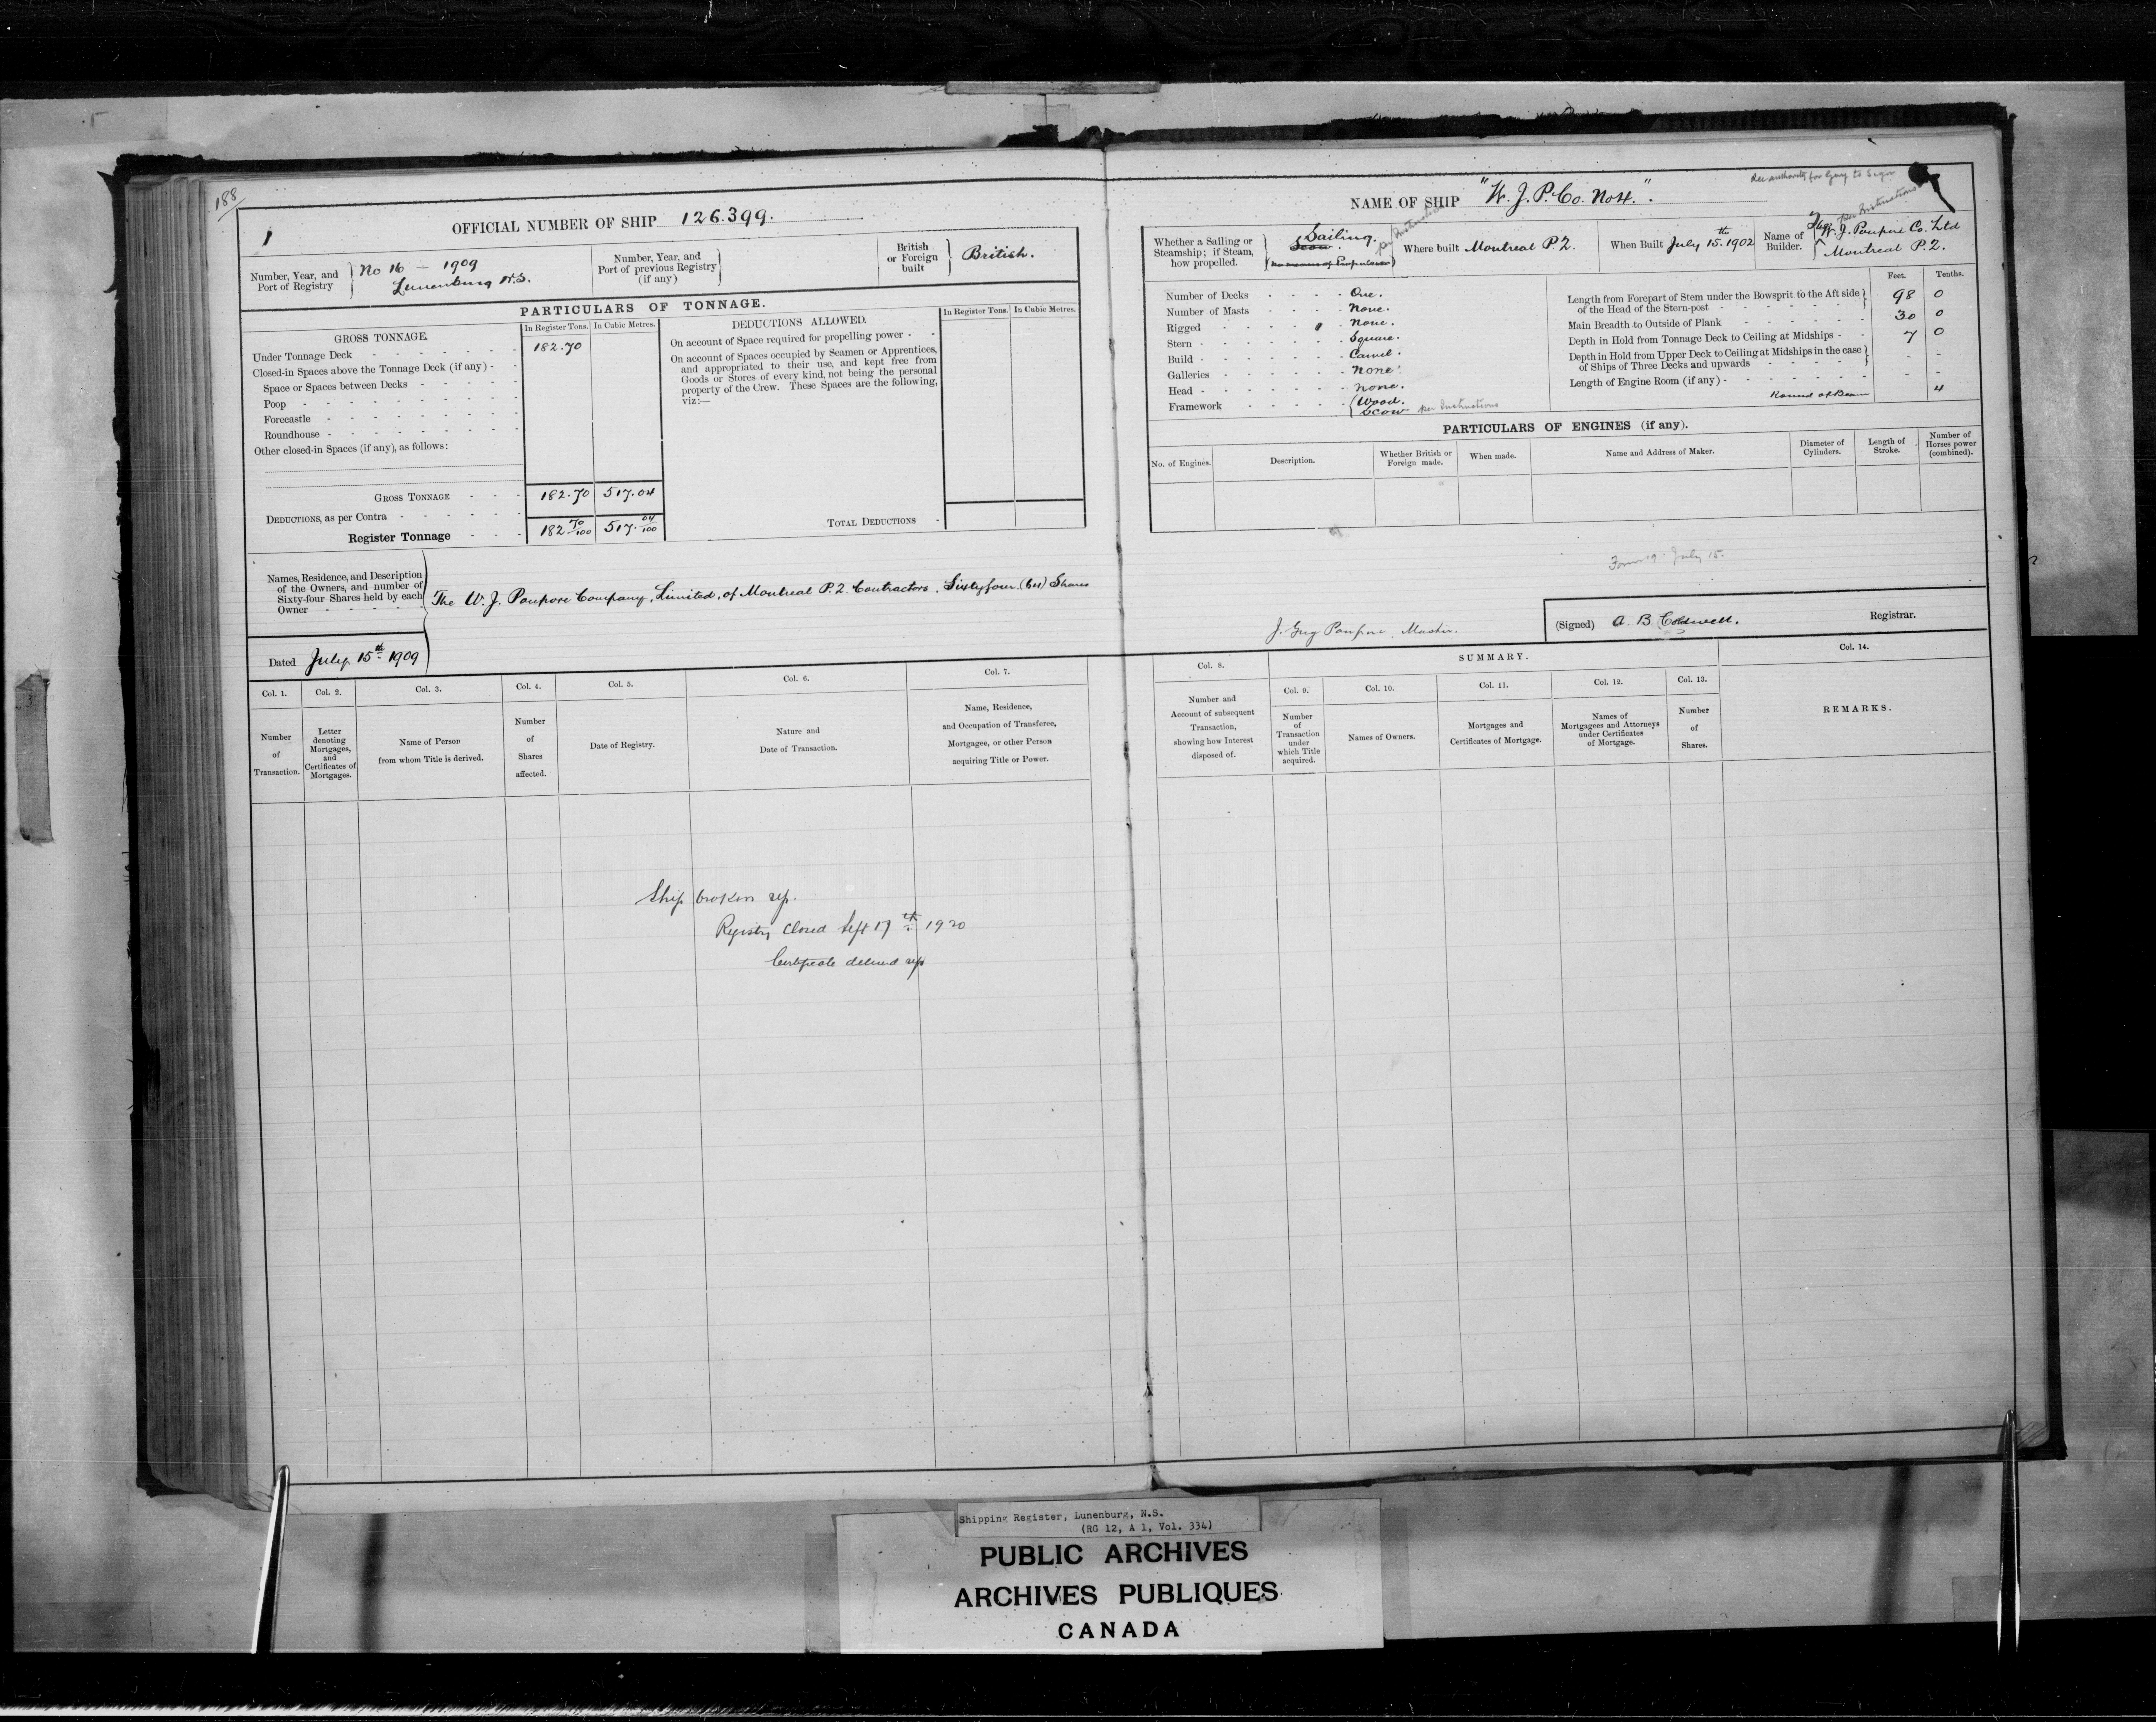 188
1
OFFICIAL NUMBER OF SHIP 126.399.
Number, Year, and Port of Registry
No 16 — 1909
Lunenburg N.S.
Number, Year, and Port of previous Registry (if any)
British or Foreign built
British.
PARTICULARS OF TONNAGE.
GROSS TONNAGE.
In Register Tons. In Cubic Metres.
Under Tonnage Deck 182.70
Closed-in Spaces above the Tonnage Deck (if any)
Space or Spaces between Decks
Poop
Forecastle
Roundhouse
Other closed-in Spaces (if any), as follows:
GROSS TONNAGE 182.70 517.04
DEDUCTIONS, as per Contra
Register Tonnage 182 70/100 517. 04/100
DEDUCTIONS ALLOWED.
In Register Tons. In Cubic Metres.
On account of Space required for propelling power
On account of Spaces occupied by Seamen or Apprentices,
and appropriated to their use, and kept free from
Goods or Stores of every kind, not being the personal
property of the Crew. These Spaces are the following,
viz:—
TOTAL DEDUCTIONS
Names, Residence, and Description
of the Owners, and number of
Sixty-four Shares held by each
Owner
The W. J. Poupore Company, Limited, of Montreal P.2. Contractors. Sixtyfour (64) Shares
Dated July 15th 1909
Col. 1. Number of Transaction.
Col. 2. Letter denoting Mortgages, and Certificates of Mortgages.
Col. 3. Name of Person from whom Title is derived.
Col. 4. Number of Shares affected.
Col. 5. Date of Registry.
Col. 6. Nature and Date of Transaction.
Col. 7. Name, Residence, and Occupation of Transferee, Mortgagee, or other Person acquiring Title or Power.
Ship broken up.
Registry closed Sept 17th 1920
Certificate delivered up
NAME OF SHIP "W. J. P. Co. No 4."
See authority for Guy to Sign
Whether a Sailing or Steamship; if Steam, how propelled.
Sailing.
Scow.
(no means of Propulsion)
per Instructions
Where built Montreal P.2.
When Built July 15th 1902
Name of Builder.
The W. J. Poupore Co. Ltd
Montreal P.2.
per Instructions
Number of Decks One.
Number of Masts None.
Rigged None.
Stern Square.
Build Carvel.
Galleries None.
Head None.
Framework Wood.
Scow per Instructions
Feet. Tenths.
Length from Forepart of Stem under the Bowsprit to the Aft side of the Head of the Stern-post 98 0
Main Breadth to Outside of Plank 30 0
Depth in Hold from Tonnage Deck to Ceiling at Midships 7 0
Depth in Hold from Upper Deck to Ceiling at Midships in the case of Ships of Three Decks and upwards - -
Length of Engine Room (if any) - -
Round of Beam 4
PARTICULARS OF ENGINES (if any).
No. of Engines.
Description.
Whether British or Foreign made.
When made.
Name and Address of Maker.
Diameter of Cylinders.
Length of Stroke.
Number of Horses power (combined).
Form 19 July 15.
J. Guy Poupore, Master.
(Signed) A. B. Coldwell. Registrar.
SUMMARY.
Col. 8. Number and Account of subsequent Transaction, showing how Interest disposed of.
Col. 9. Number of Transaction under which Title acquired.
Col. 10. Names of Owners.
Col. 11. Mortgages and Certificates of Mortgage.
Col. 12. Names of Mortgagees and Attorneys under Certificates of Mortgage.
Col. 13. Number of Shares.
Col. 14. REMARKS.
Shipping Register, Lunenburg, N.S.
(RG 12, A 1, Vol. 334)
PUBLIC ARCHIVES
ARCHIVES PUBLIQUES
CANADA